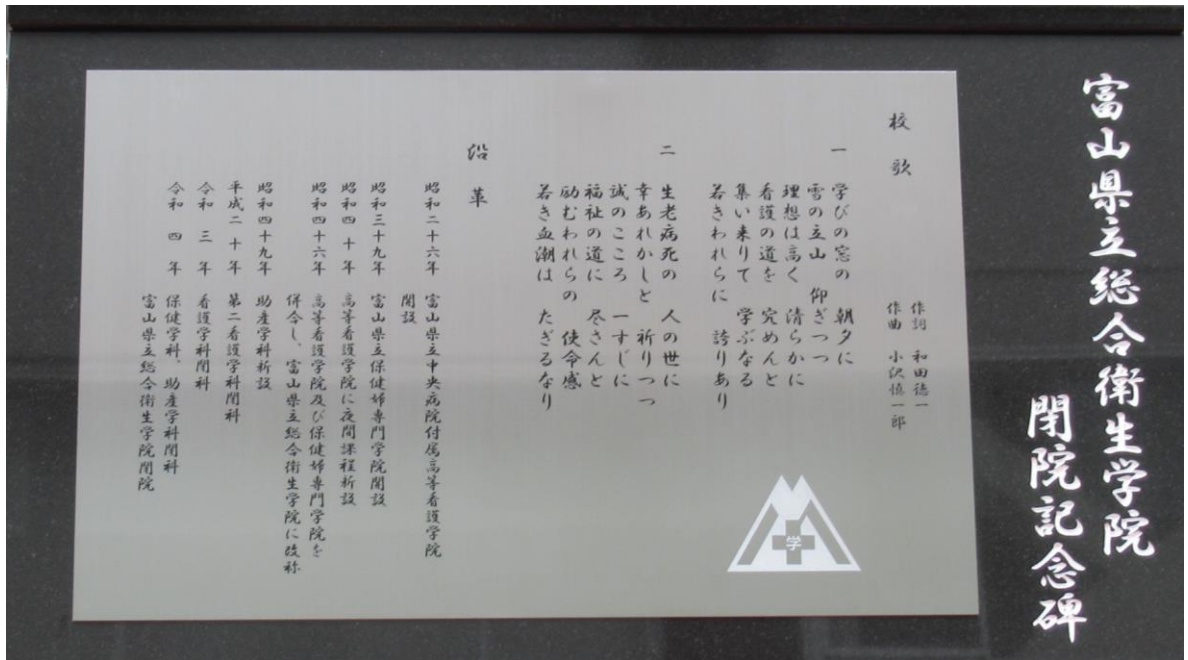 富山県立総合衛生学院
閉院記念碑
校歌
作詞 和田徳一
作曲 小沢慎一郎
一 学びの窓の 朝夕に
雪の立山 仰ぎつつ
理想は高く 清らかに
看護の道を 究めんと
集い来りて 学ぶなる
若きわれらに 誇りあり
二 生老病死の 人の世に
幸あれかしと 祈りつつ
誠のこころ 一すじに
福祉の道に 尽さんと
励むわれらの 使命感
若き血潮は たぎるなり
学
沿革
昭和二十六年 富山県立中央病院付属高等看護学院
開設
昭和三十九年 富山県立保健婦専門学院開設
昭和四十年 高等看護学院に夜間課程新設
昭和四十六年 高等看護学院及び保健婦専門学院を
併合し、富山県立総合衛生学院に改称
昭和四十九年 助産学科新設
平成二十年 第二看護学科閉科
令和三年 看護学科閉科
令和四年 保健学科、助産学科閉科
富山県立総合衛生学院閉院